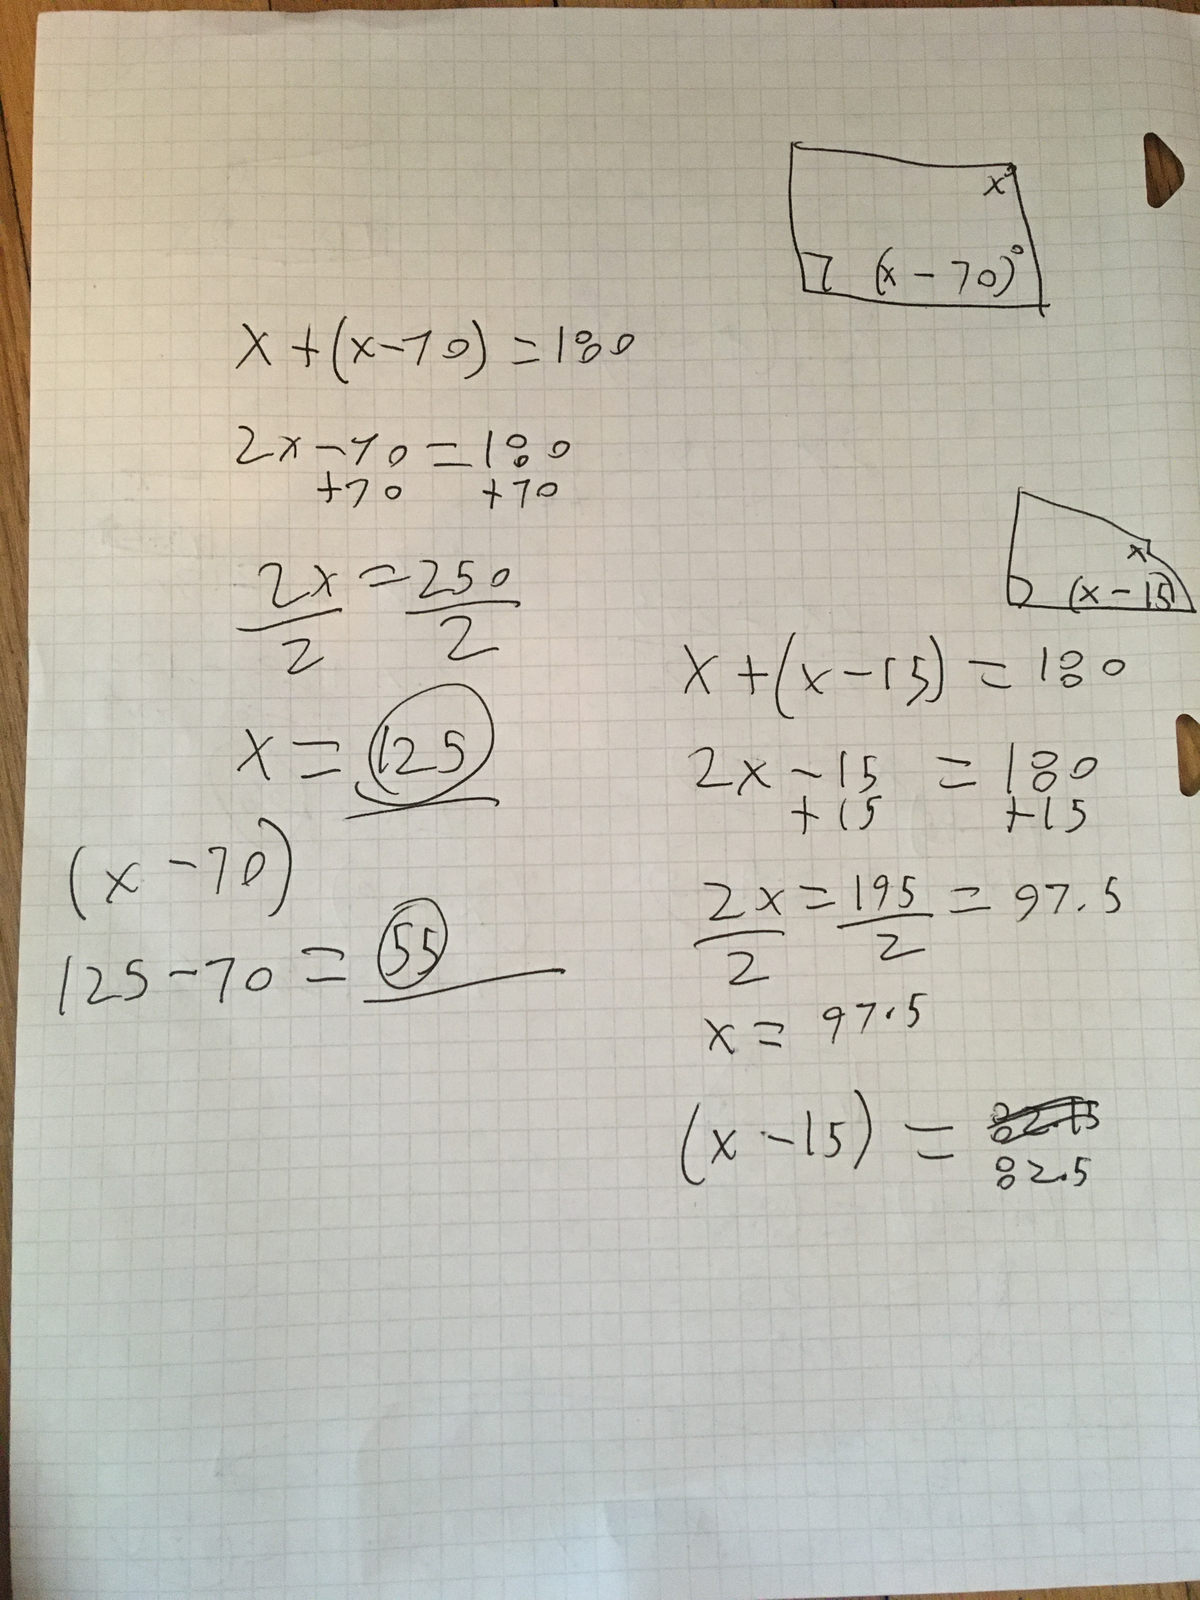 x°
(x - 70)°
x + (x - 70) = 180
2x - 70 = 180
+70 +70
2x = 250
2 2
x = 125
(x - 70)
125 - 70 = 55
x
(x - 15)
x + (x - 15) = 180
2x - 15 = 180
+15 +15
2x = 195 = 97.5
2 2
x = 97.5
(x - 15) = 82.15
82.5